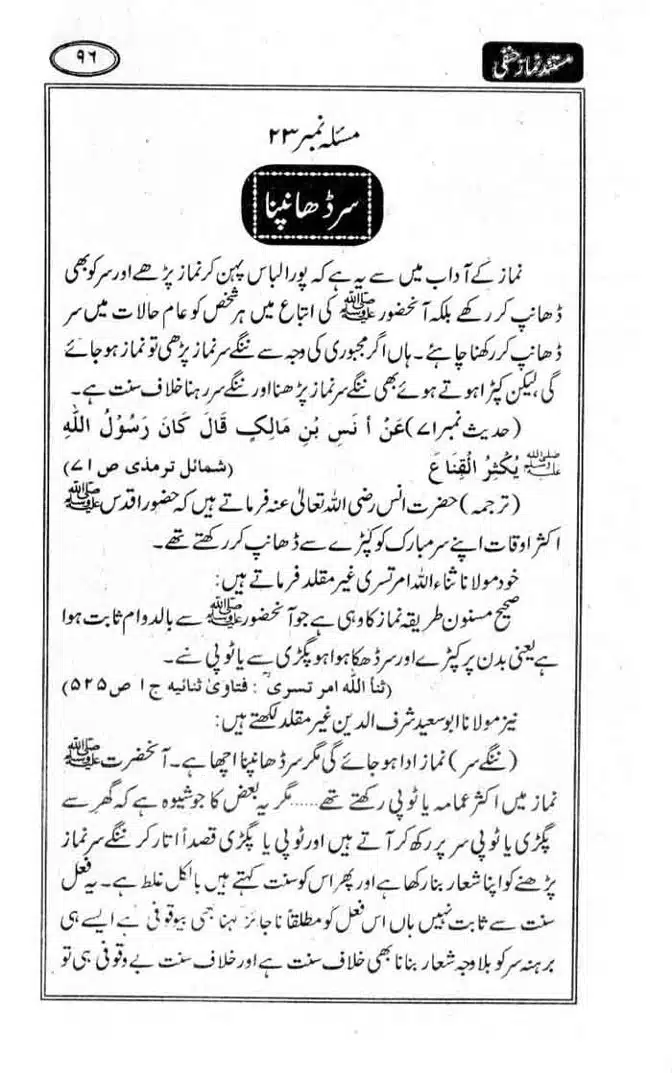 مستند نماز حنفی
۹۶
مسئلہ نمبر ۲۳
سر ڈھانپنا
نماز کے آداب میں سے یہ ہے کہ پورا لباس پہن کر نماز پڑھے اور سر کو بھی
ڈھانپ کر رکھے بلکہ آنحضور ﷺ کی اتباع میں ہر شخص کو عام حالات میں سر
ڈھانپ کر رکھنا چاہئے۔ ہاں اگر مجبوری کی وجہ سے ننگے سر نماز پڑھی تو نماز ہو جائے
گی، لیکن کپڑا ہوتے ہوئے بھی ننگے سر نماز پڑھنا اور ننگے سر رہنا خلاف سنت ہے۔
(حدیث نمبر ۷۱) عَنْ أَنَسِ بْنِ مَالِكٍ قَالَ كَانَ رَسُوْلُ اللهِ
ﷺ يُكْثِرُ الْقِنَاعَ (شمائل ترمذی ص ۷۱)
(ترجمہ) حضرت انس رضی اللہ تعالیٰ عنہ فرماتے ہیں کہ حضور اقدس ﷺ
اکثر اوقات اپنے سر مبارک کو کپڑے سے ڈھانپ کر رکھتے تھے۔
خود مولانا ثناء اللہ امرتسری غیر مقلد فرماتے ہیں:
صحیح مسنون طریقہ نماز کا وہی ہے جو آنحضور ﷺ سے بالدوام ثابت ہوا
ہے یعنی بدن پر کپڑے اور سر ڈھکا ہوا ہو پگڑی سے یا ٹوپی سے۔
(ثنأ الله امر تسریؒ : فتاویٰ ثنائیه ج ۱ ص ۵۲۵)
نیز مولانا ابو سعید شرف الدین غیر مقلد لکھتے ہیں:
(ننگے سر) نماز ادا ہو جائے گی مگر سر ڈھانپنا اچھا ہے۔ آنحضرت ﷺ
نماز میں اکثر عمامہ یا ٹوپی رکھتے تھے..... مگر یہ بعض کا جو شیوہ ہے کہ گھر سے
پگڑی یا ٹوپی سر پر رکھ کر آتے ہیں اور ٹوپی یا پگڑی قصداً اتار کر ننگے سر نماز
پڑھنے کو اپنا شعار بنا رکھا ہے اور پھر اس کو سنت کہتے ہیں بالکل غلط ہے۔ یہ فعل
سنت سے ثابت نہیں ہاں اس فعل کو مطلقاً ناجائز کہنا بھی بیوقوفی ہے ایسے ہی
برہنہ سر کو بلا وجہ شعار بنانا بھی خلاف سنت ہے اور خلاف سنت بے وقوفی ہی تو